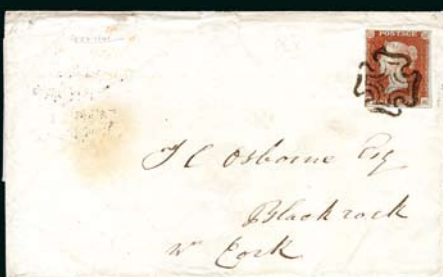 POSTAGE
J C Osborne Esq
Blackrock
nr Cork